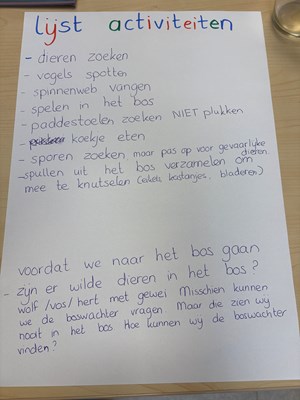 lijst activiteiten
- dieren zoeken
- vogels spotten
- spinnenweb vangen
- spelen in het bos
- paddestoelen zoeken NIET plukken
- koekje eten
- sporen zoeken maar pas op voor gevaarlijke dieren
- spullen uit het bos verzamelen om
mee te knutselen (eikels, kastanjes, bladeren)
voordat we naar het bos gaan
- zijn er wilde dieren in het bos?
wolf /vos/ hert met gewei Misschien kunnen
we de boswachter vragen Maar die zien wy
nooit in het bos Hoe kunnen wy de boswachter
vinden?